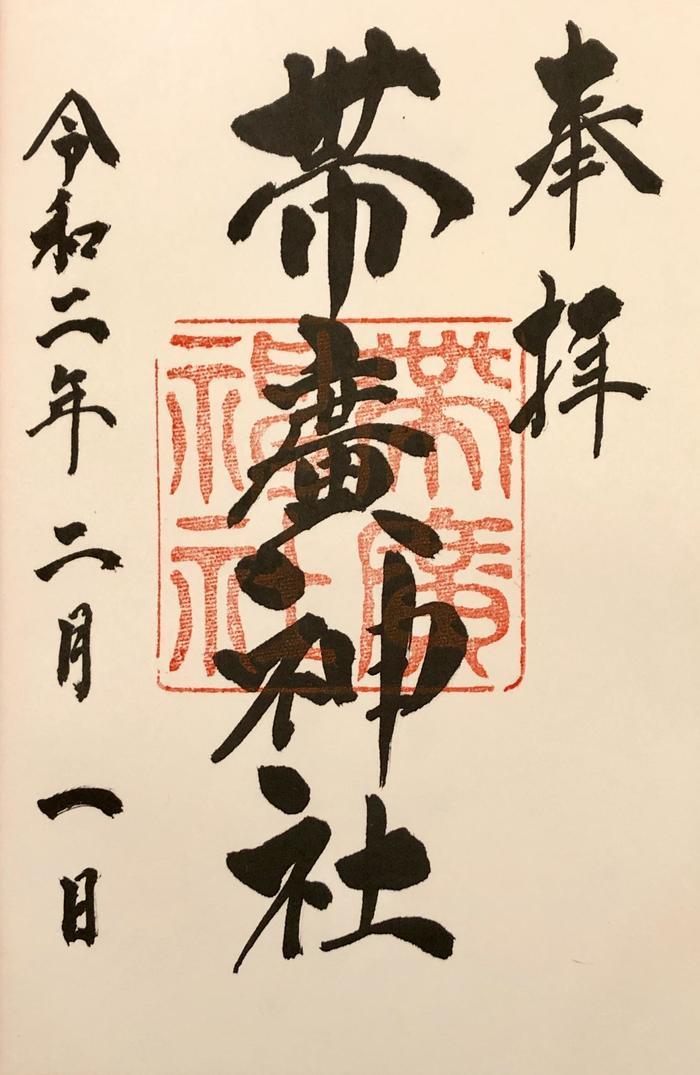 奉拝
帯廣神社
帯廣
神社
令和二年 二月 一日